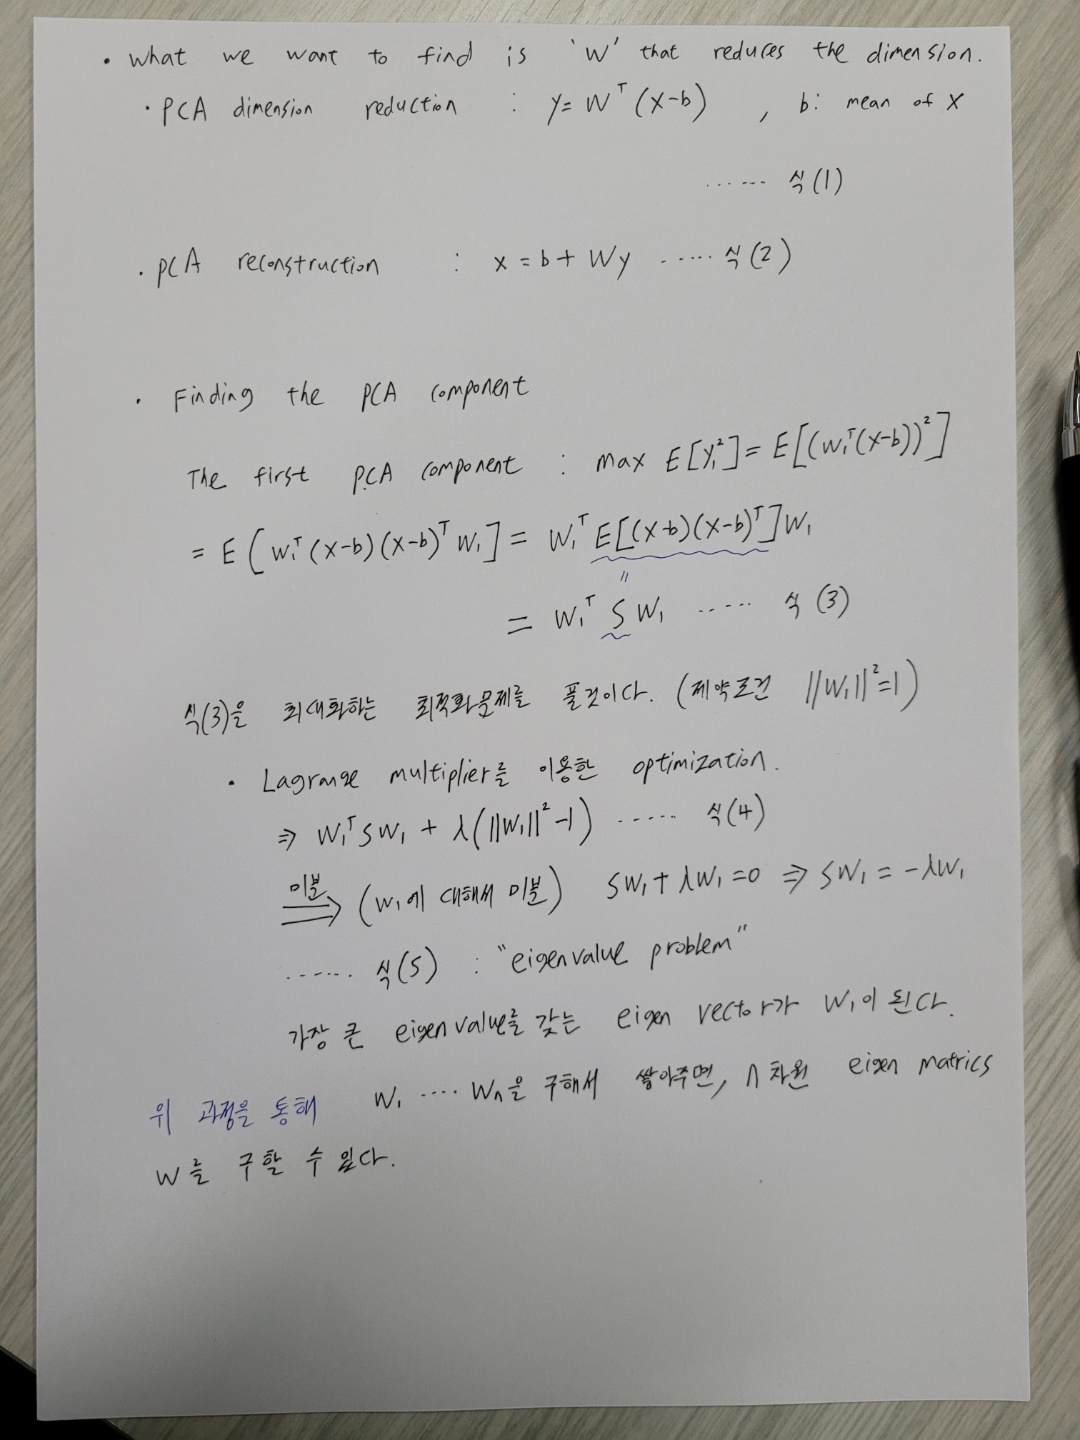 • What we want to find is 'W' that reduces the dimension.
• PCA dimension reduction : y = Wᵀ(x-b) , b: mean of X
...... 식(1)
• PCA reconstruction : x = b + Wy ..... 식(2)
• Finding the PCA component
The first PCA component : max E[y₁²] = E[(w₁ᵀ(x-b))²]
= E[w₁ᵀ(x-b)(x-b)ᵀw₁] = w₁ᵀE[(x-b)(x-b)ᵀ]w₁
"
= w₁ᵀ S w₁ ..... 식(3)
식(3)을 최대화하는 최적화문제를 풀것이다. (제약조건 ||w₁||²=1)
• Lagrange multiplier를 이용한 optimization.
⇒ w₁ᵀSw₁ + λ(||w₁||²-1) ..... 식(4)
미분 ⇒ (w₁에 대해서 미분) Sw₁+λw₁=0 ⇒ Sw₁ = -λw₁
...... 식(5) : "eigenvalue problem"
가장 큰 eigen value를 갖는 eigen vector가 w₁이 된다.
위 과정을 통해 w₁ .... wₙ을 구해서 쌓아주면, n차원 eigen matrics
W를 구할 수 있다.